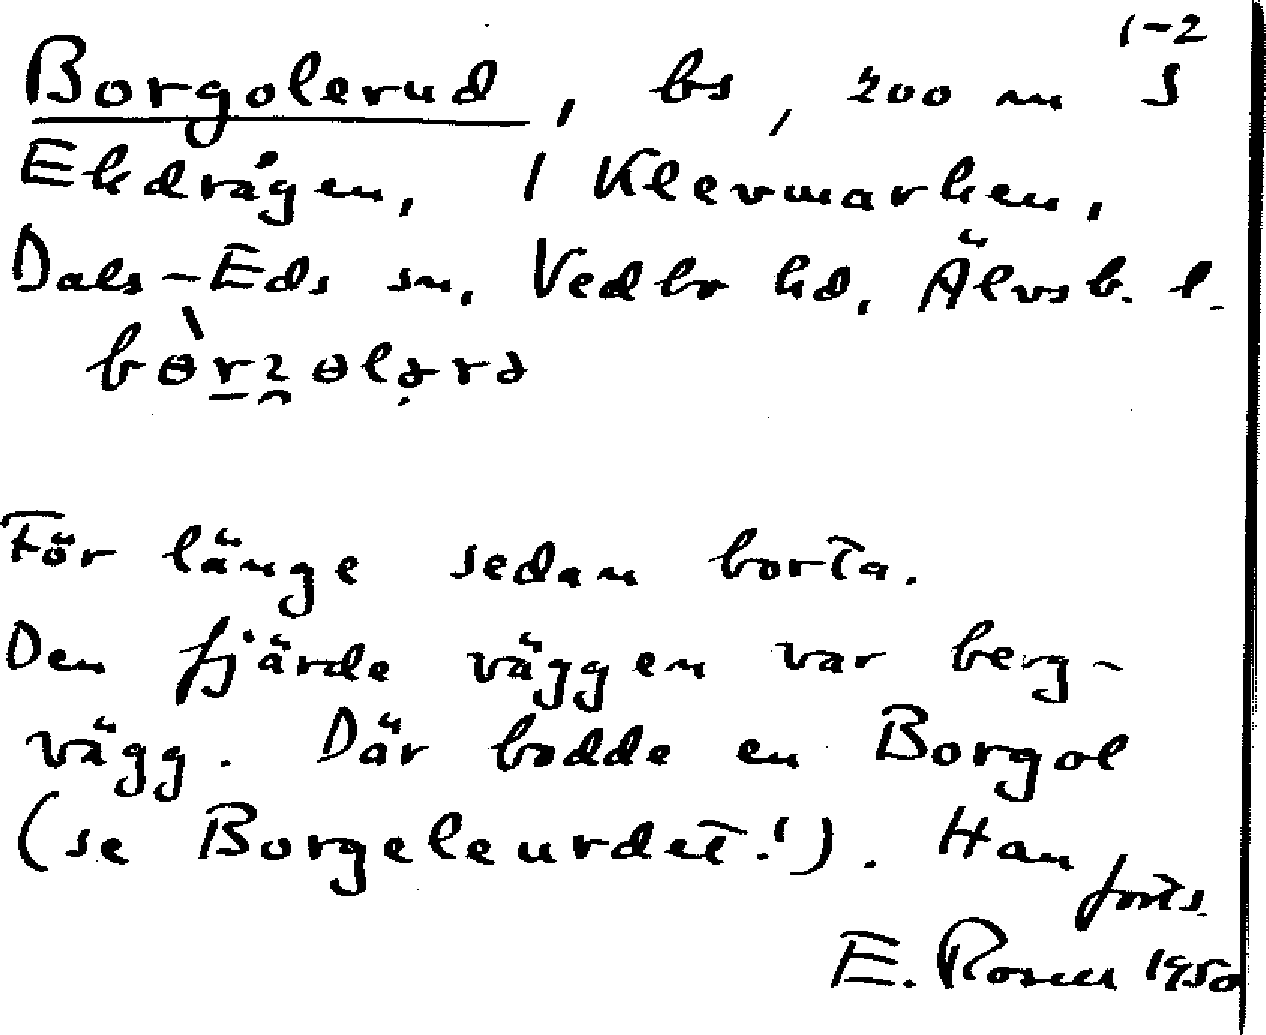 1-2
Borgolerud, bs, 200 m S
Ekdrågen, 1 Klevmarken,
Dals-Eds sn, Vedbo hd, Älvsb. l.
För länge sedan borta.
Den fjärde väggen var berg-
vägg. Där bodde en Borgol
(se Borgeleurdet!). Han
forts.
E. Rosell 1950